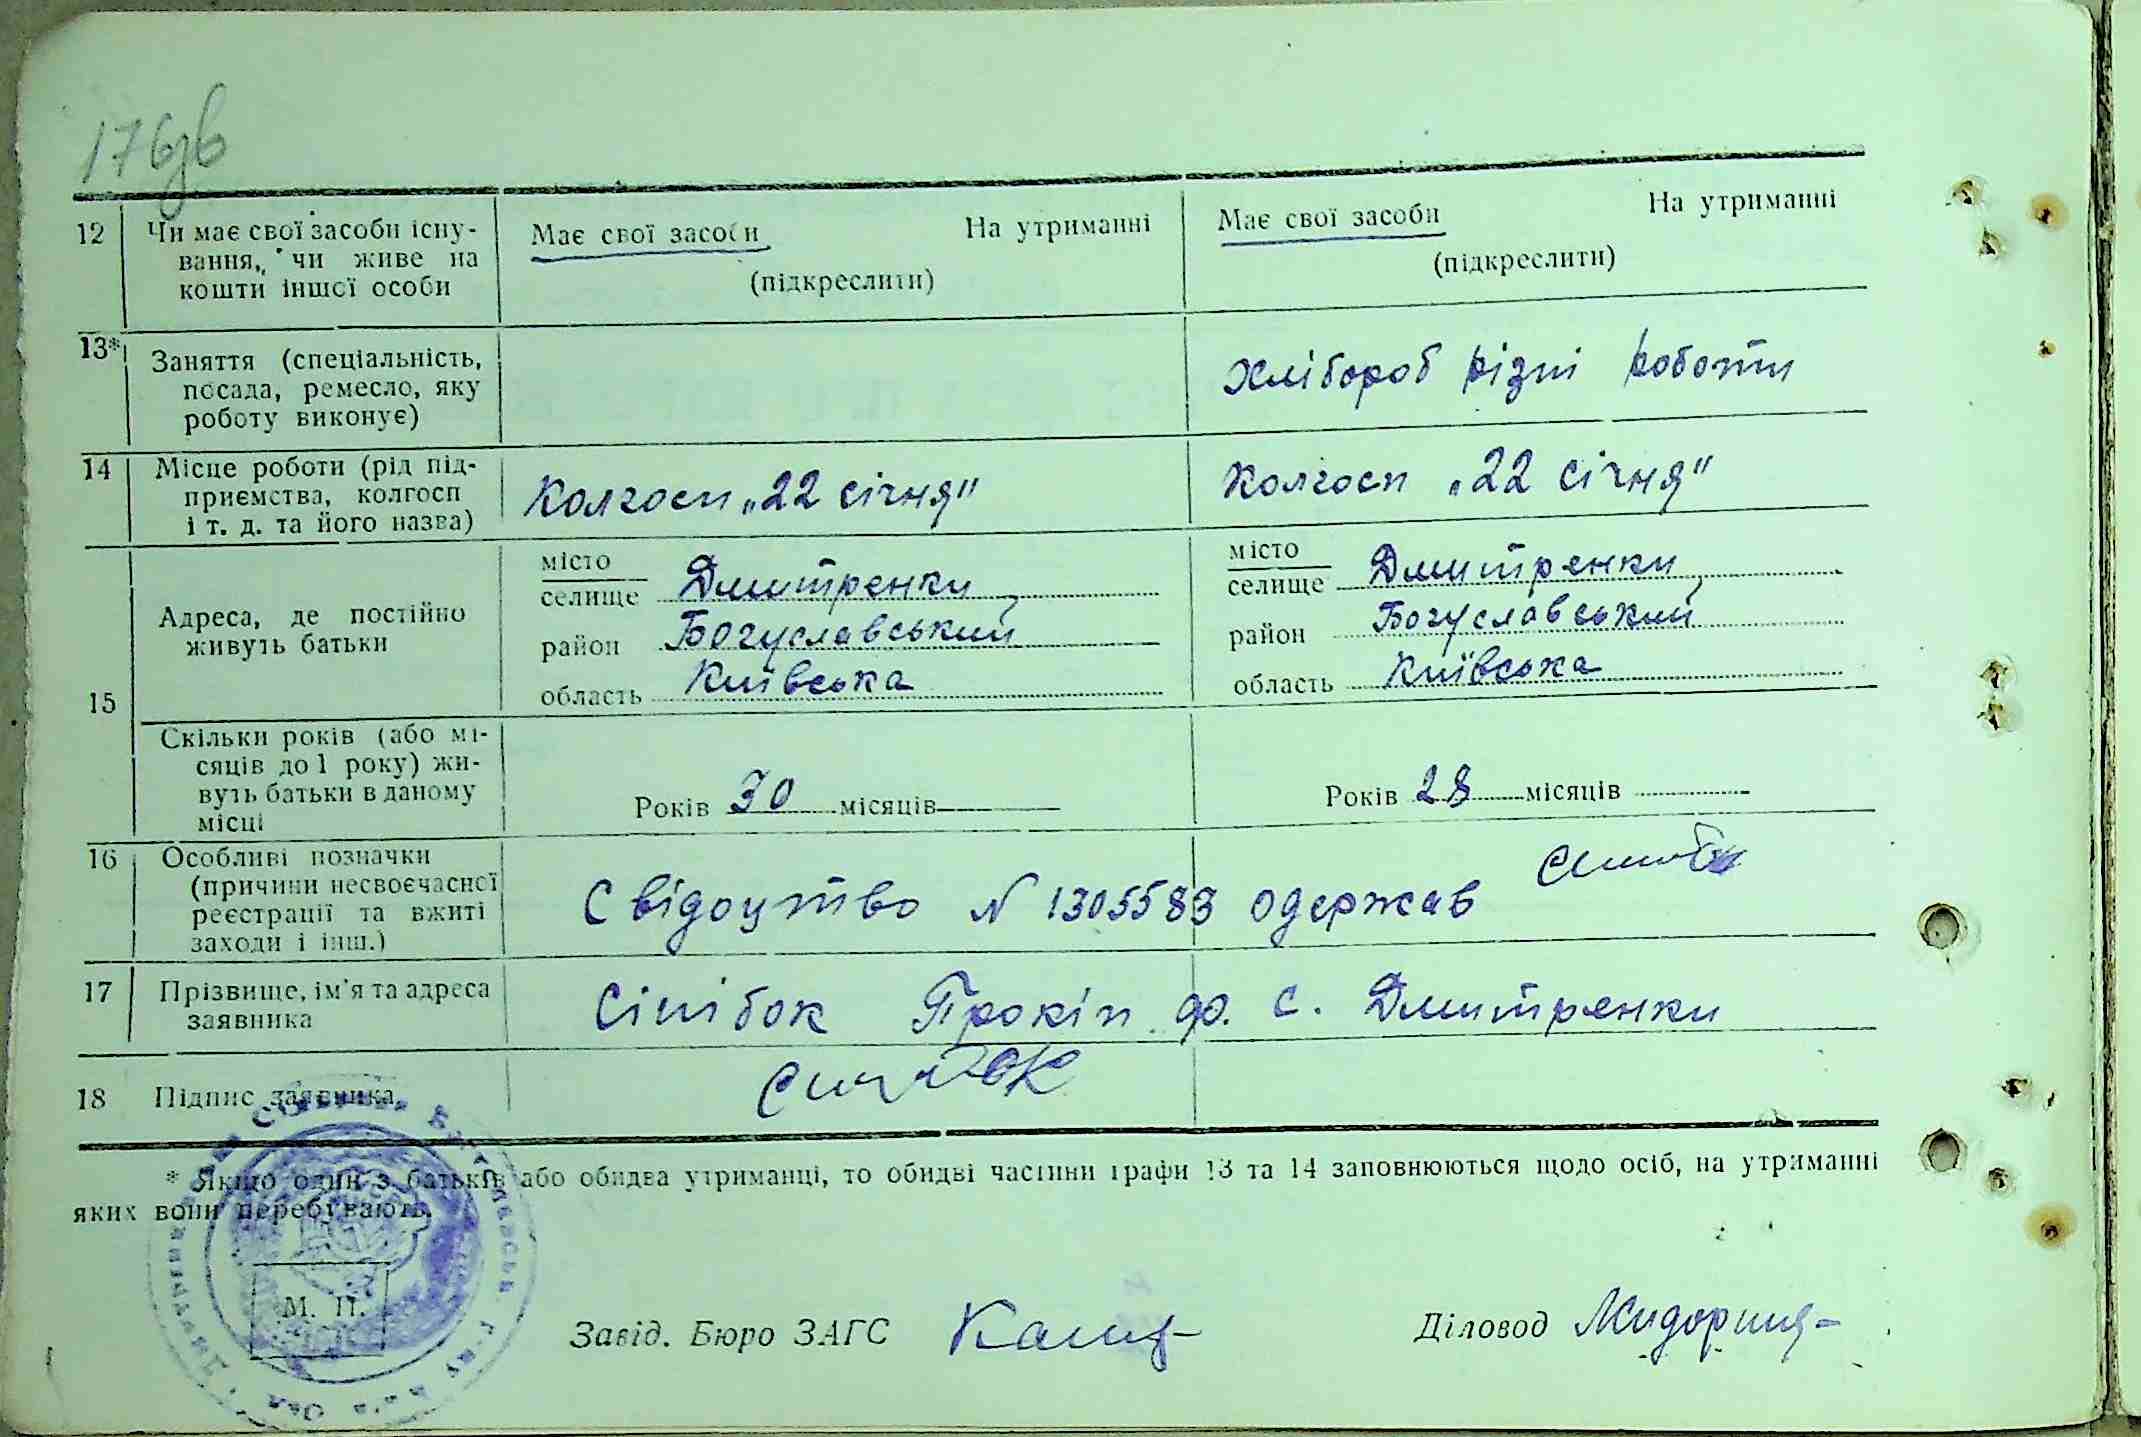 176зв
12 Чи має свої засоби існу-
вання, чи живе на
кошти іншої особи
Має свої засоби На утриманні
(підкреслити)
Має свої засоби На утриманні
(підкреслити)
13* Заняття (спеціальність,
посада, ремесло, яку
роботу виконує)
Хлібороб різні роботи
14 Місце роботи (рід під-
приємства, колгосп
і т. д. та його назва)
Колгосп „22 січня"
Колгосп „22 січня"
15 Адреса, де постійно
живуть батьки
місто
селище Дмитренки,
район Богуславський
область Київська
місто
селище Дмитренки,
район Богуславський
область Київська
Скільки років (або мі-
сяців до 1 року) жи-
вуть батьки в даному
місці
Років 30 місяців
Років 28 місяців
16 Особливі позначки
(причини несвоєчасної
реєстрації та вжиті
заходи і інш.)
Свідоцтво N 1305583 одержав
17 Прізвище, ім'я та адреса
заявника
Сінібок Прокіп. ф. с. Дмитренки
18 Підпис заявника
* Якщо один з батьків або обидва утриманці, то обидві частини графи 13 та 14 заповнюються щодо осіб, на утриманні
яких вони перебувають.
М. П.
Завід. Бюро ЗАГС
Діловод